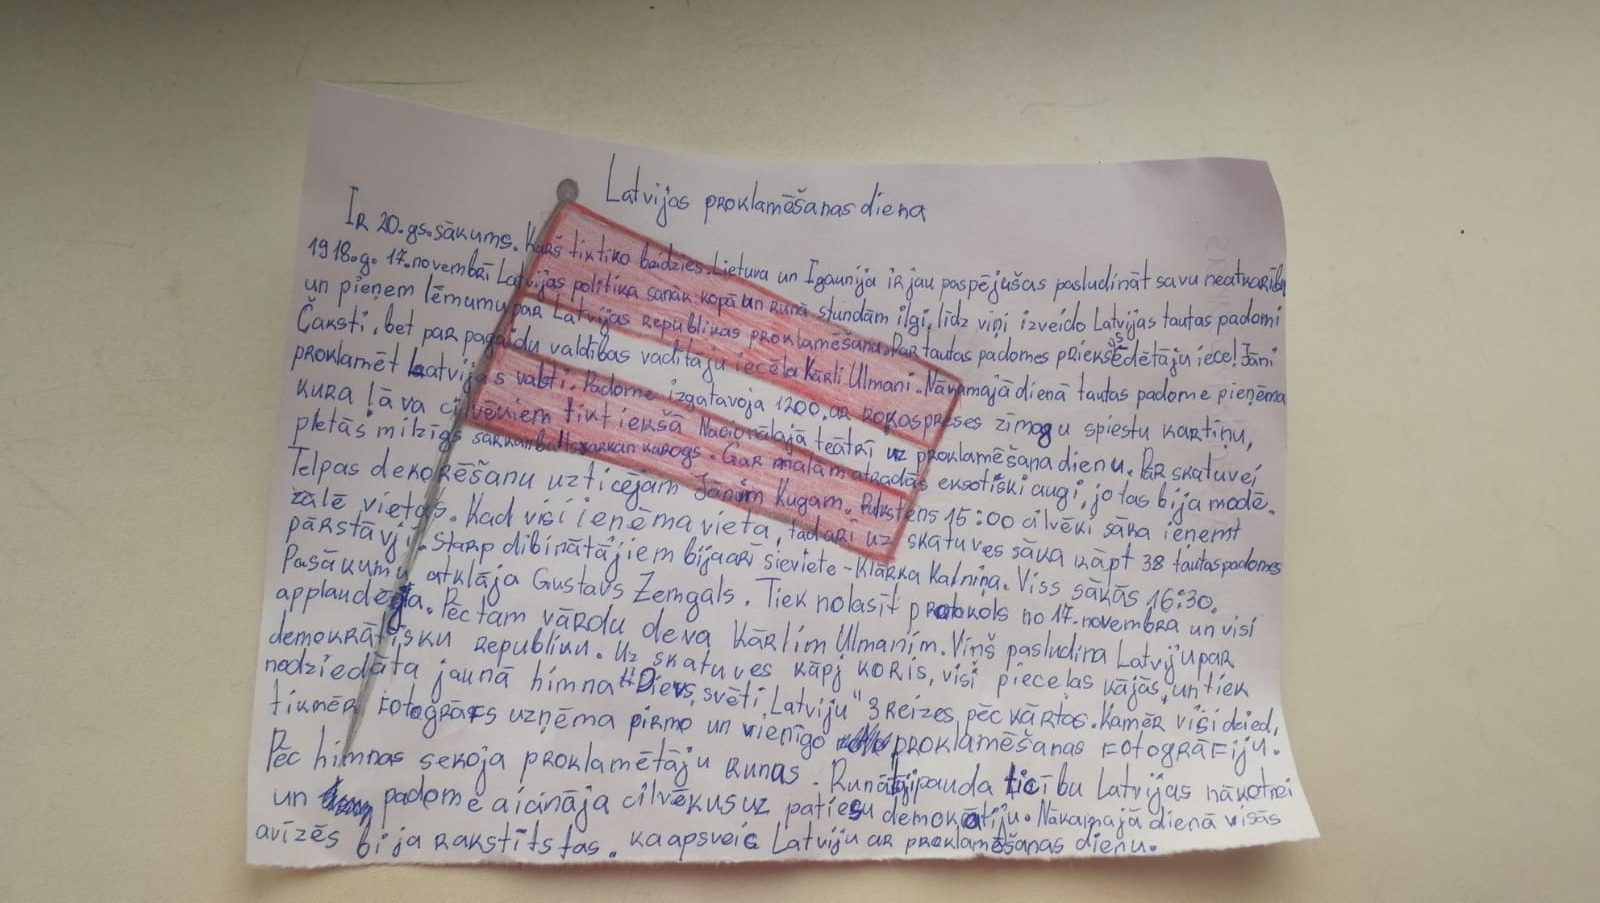 Latvijas proklamēšanas diena
Ir 20.gs.sākums. Karš tiktiko beidzies. Lietuva un Igaunija ir jau paspējušas pasludināt savu neatkarību
1918.g. 17.novembrī Latvijas politiķa sanāk kopā un runā stundām ilgi, līdz viņi izveido Latvijas tautas padomi
un pieņem lēmumu par Latvijas republikas proklamēšanu. Par tautas padomes priekšsēdētāju ieceļ Jāni
Čaksti, bet par pagaidu valdības vadītāju iecēla Kārli Ulmani. Nākamajā dienā tautas padome pieņēma
proklamēt Latvijas valsti. Padome izgatavoja 1200 ar rokaspreses zīmogu spiestu kartiņu,
kura ļāva cilvēkiem tikt iekšā Nacionālajā teātrī uz proklamēšana dienu. Pār skatuvei
pletās milzīgs sarkanbaltsarkan karogs. Gar malām atradās eksotiski augi, jo tas bija modē.
Telpas dekorēšanu uzticējam Jānim Kugam. Pulkstens 15:00 cilvēki sāka ieņemt
zālē vietas. Kad visi ieņēma vieta, tad arī uz skatuves sāka kāpt 38 tautaspadomes
pārstāvji. Starp dibinātājiem bija arī sieviete - Klārka Kalniņa. Viss sākās 16:30.
Pasākumu atklāja Gustavs Zemgals. Tiek nolasīt protokols no 17.novembra un visi
applaudēja. Pēc tam vārdu deva Kārlim Ulmanim. Viņš pasludina Latviju par
demokrātisku republiku. Uz skatuves kāpj koris, visi pieceļas kājās, un tiek
nodziedāta jaunā himna "Dievs, svēti Latviju" 3 reizes pēc kārtas. Kamēr visi dzied,
tikmēr fotogrāfs uzņēma pirmo un vienīgo proklamēšanas fotogrāfiju.
Pēc himnas sekoja proklamētāju runas. Runātāji pauda ticību Latvijas nākotnei
un padome aicināja cilvēkus uz patiesu demokrātiju. Nākamajā dienā visās
avīzēs bija rakstīts tas, ka apsveic Latviju ar proklamēšanas dienu.